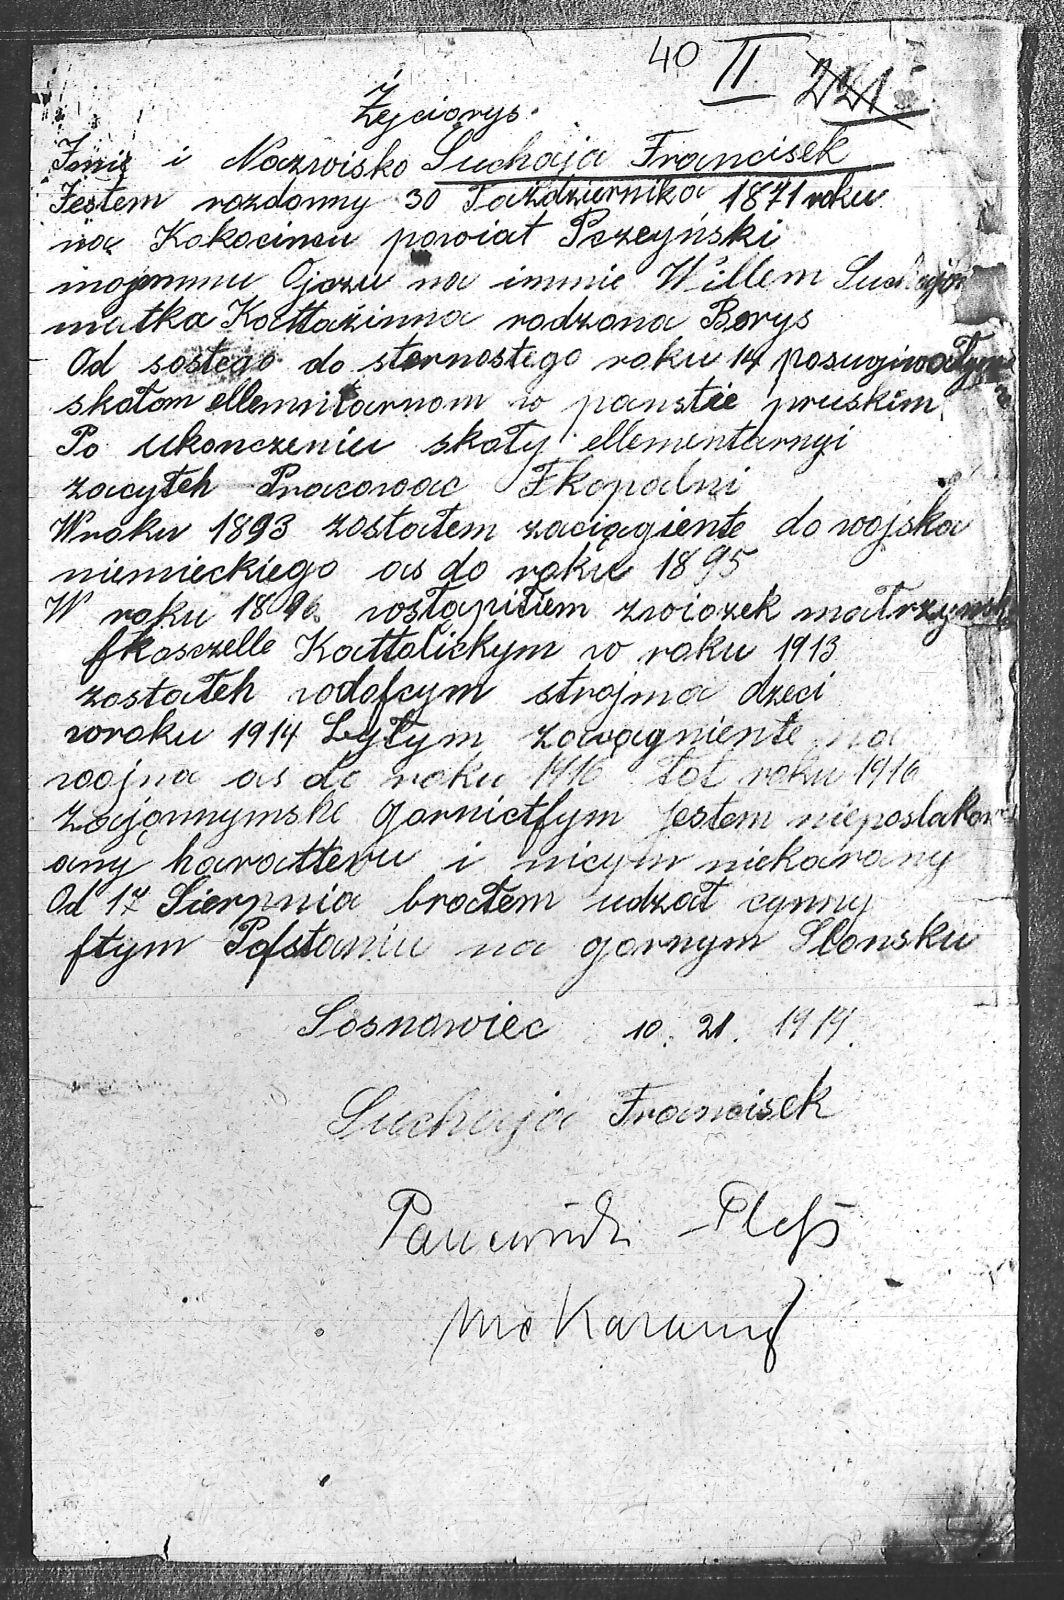 40 II 221
Żeyciorys.
Imie i Nazwisko Suchaja Francisek
Jestem rozdonny 30 Pażdziernika 1871 roku
na Kokocincu powiat Pszeyński
mojemmu Ojczu na immie Willem Suchaja
matka Kattażinna rodzona Borys
Od sostego do sternostego roku 14 posugiwołym
skołom ellemntarnom w panstie pruskim
Po ukonczeniu skoły ellementarnyi
zacyłeh Pracowac Fkopalni
Wroku 1893 zostałem zaciągiente do wojska
niemieckiego as do roku 1895
W roku 1896 wostąpiłem zwiozek matrzynski
fkosczelle Kattolickym w roku 1913
zostałeh wdofcym strojma dzeci
wroku 1914 Łyłym zawągniente na
wojna as do roku 1916 Tot roku 1916
zajonnymske gornictfym jestem nieposlakow
any harattеru i nicym niekarany
Od 17 Sierpnia brołem udzał cynny
ftym Pofstaniu na gornym Slonsku
Sosnowiec 10. 21. 1919.
Suchaja Francisek
Pless